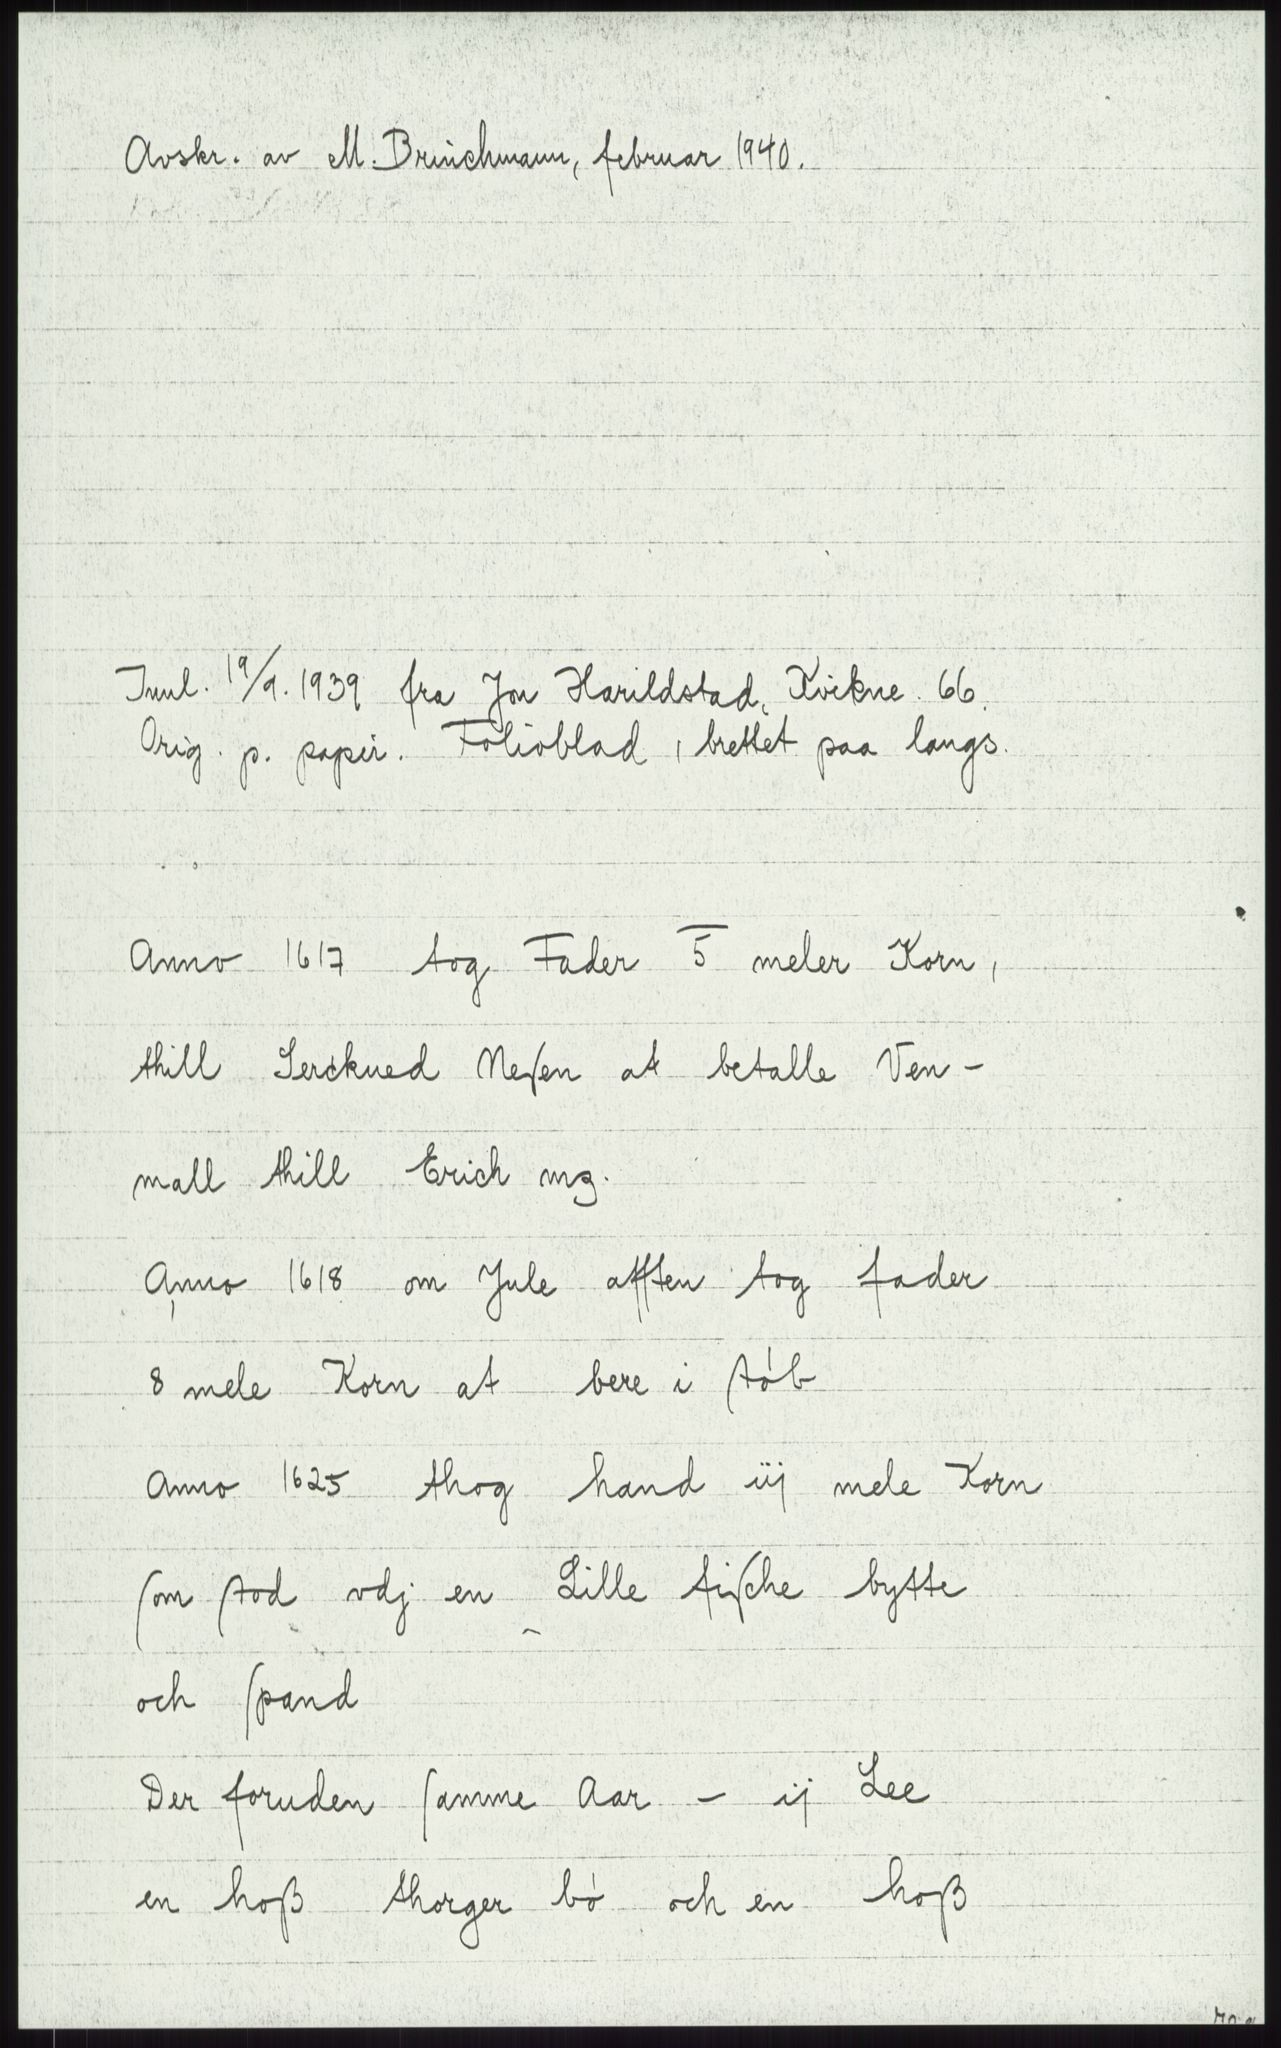 Avskr. av M. Brinchmann, februar 1940.
Innl. 19/9. 1939 fra Jon Harildstad, Kvikne. 66.
Orig. p. papir. Folioblad, brettet paa langs.
Anno 1617 tog Fader 5 meler Korn,
thill Serckued Neſen at betalle Ven-
mall thill Erich mg.
Anno 1618 om Jule afften tog fader
8 mele Korn at bere i ſtób
Anno 1625 thog hand iij mele Korn
ſom ſtod vdj en Lille fiſche bytte
och ſpand
Der foruden ſamme Aar - ij Lee
en hoß thorger bó och en hoß